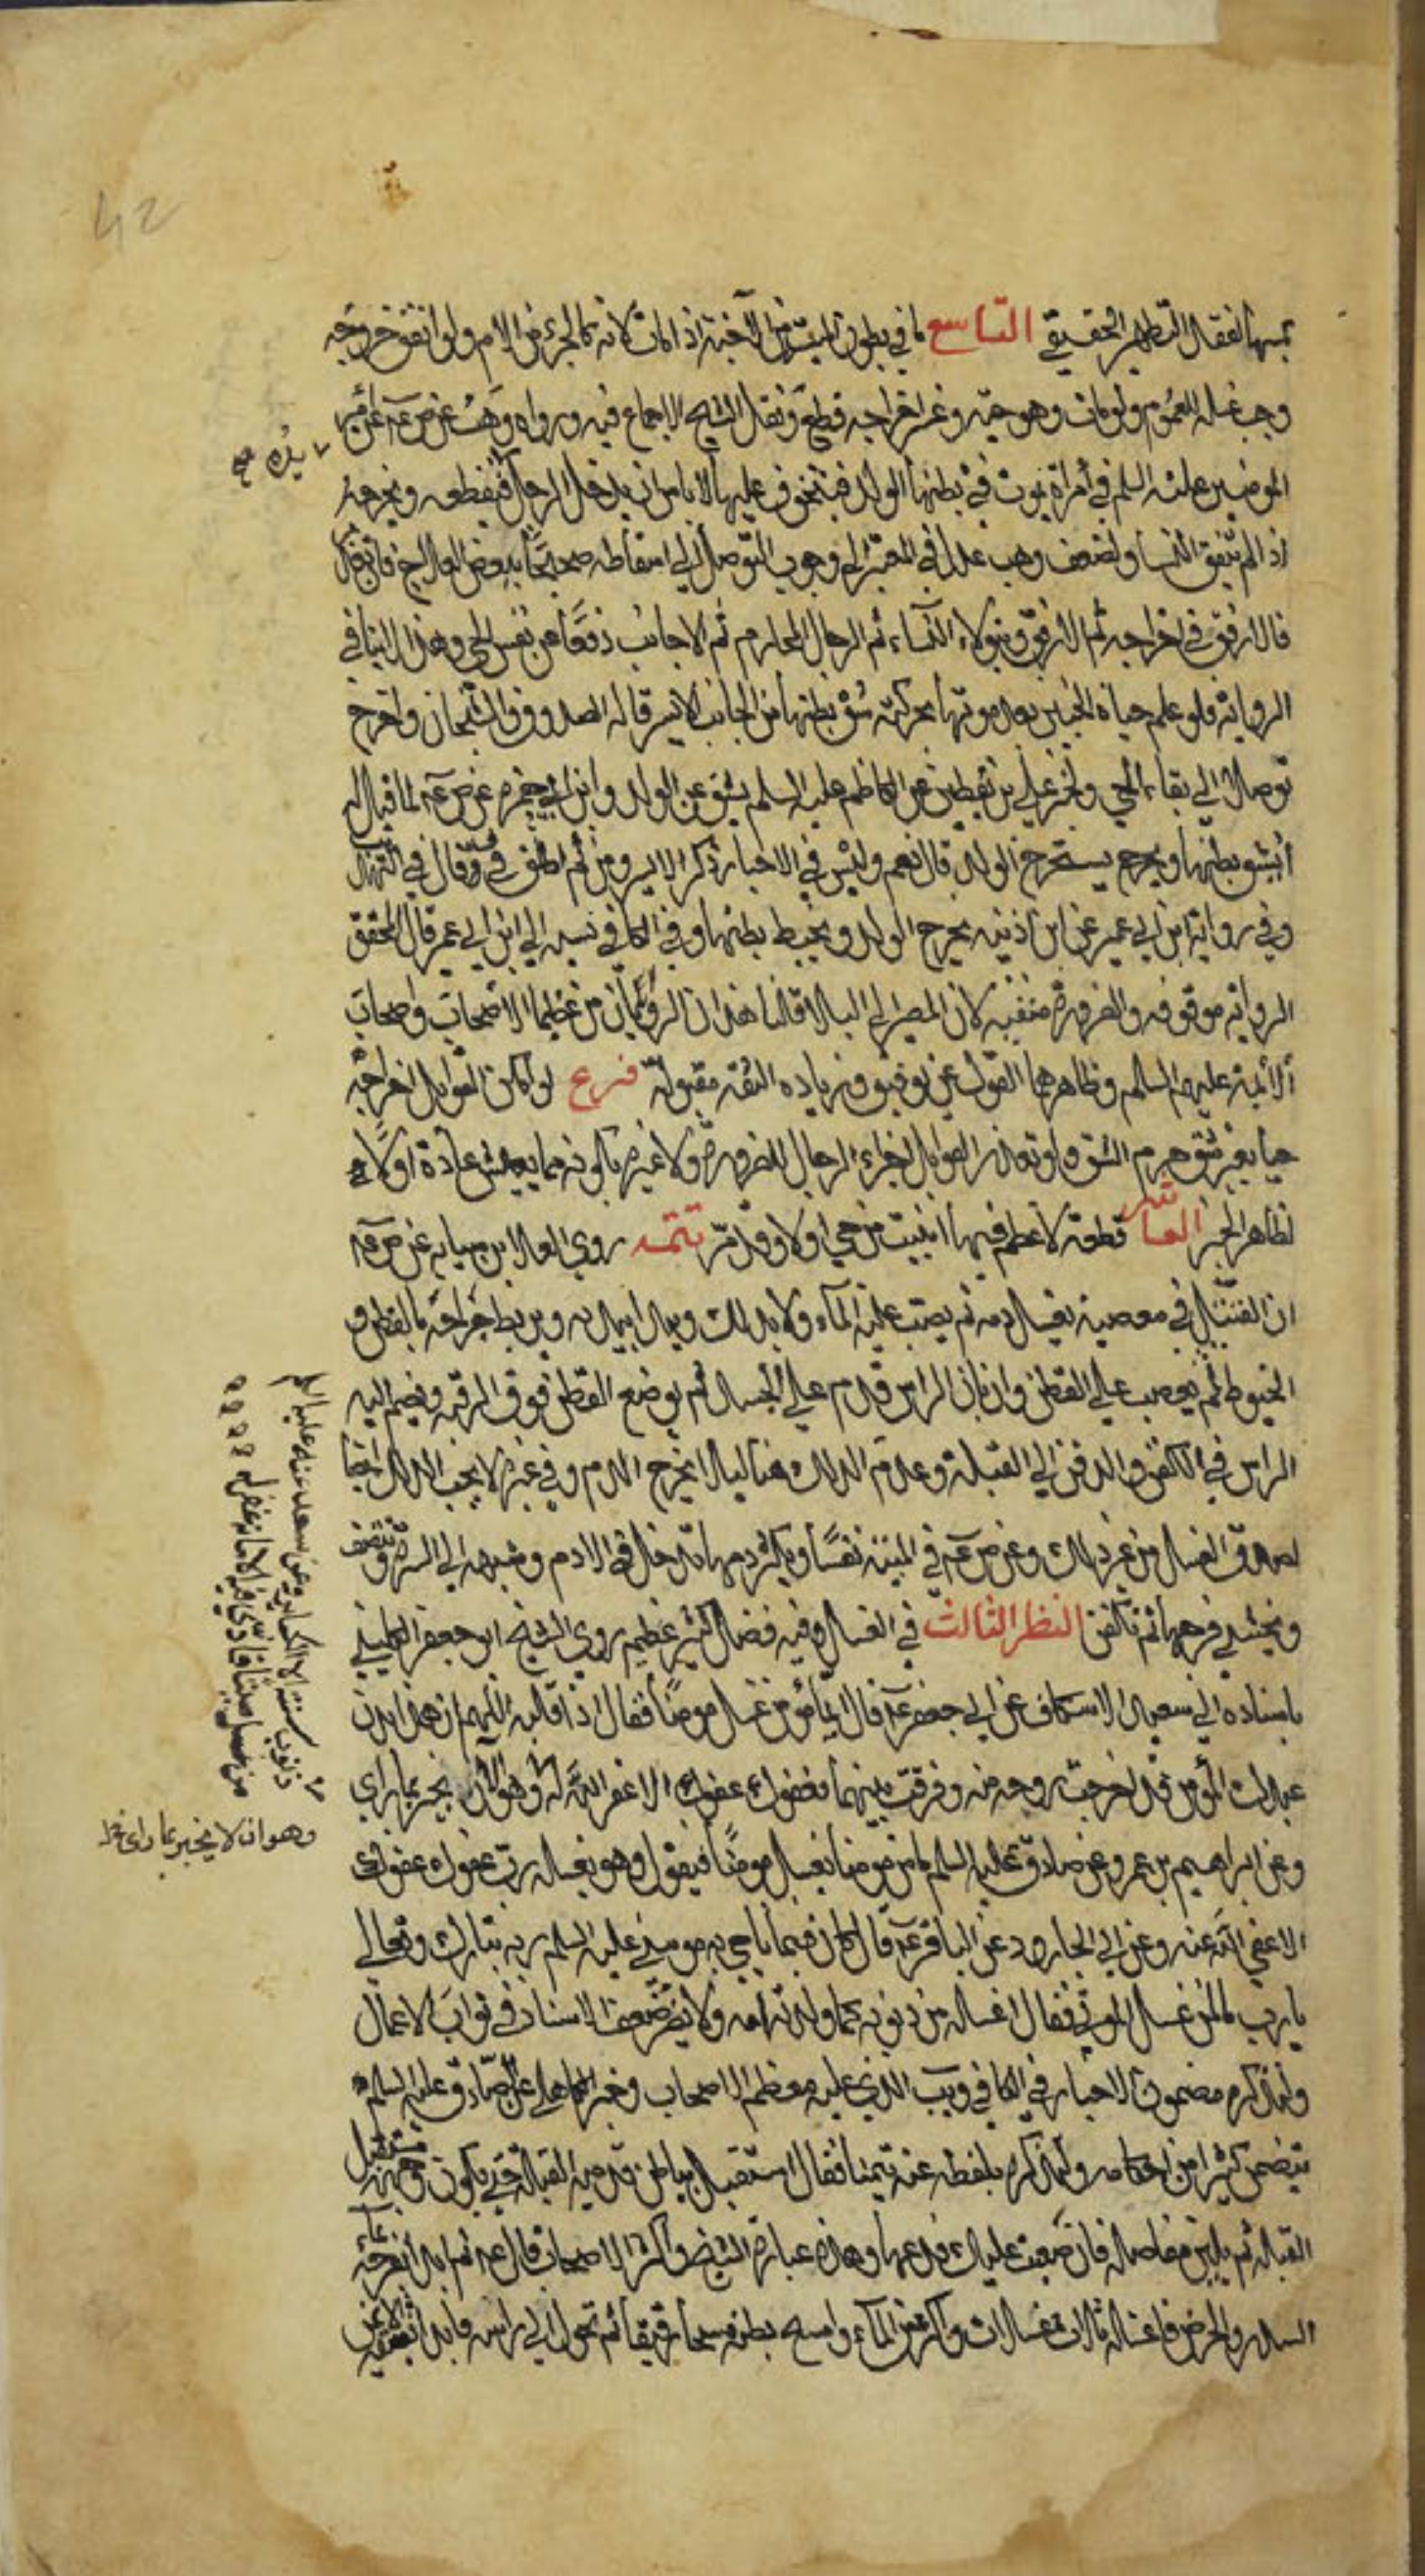 بمسها لفقد التطهير الحقيقي التاسع ما في بطون الميت من الاجنة اذا مات لانه كالجزء من الام ولو اتفق خروجه
وجب غسله للعموم ولو مات وهو حية وتعذر اخراجه قطع ونقل الشيخ الاجماع فيه ورواه وهب عن ص عه عن امير
المؤمنين عليه السلم في امراة يموت في بطنها الولد فيتخوف عليها لا باس ان يدخل الرجل فيقطعه ويخرجه
اذا لم يتفق النساء ولضعف وهب عدل في المعتبر الى وجوب التوصل الى اسقاطه صحيحا ببعض العلاج فان تعذر
فالارفق في اخراجه ثم الارفق ويتولاه النساء ثم الرجال المحارم ثم الاجانب دفعا عن نفس الحي وهذا لا ينافي
الرواية فلو علم حياة الجنين بعد موتها بحركته شق بطنها من الجانب الايسر قاله الصدوق والشيخان واخرج
توصلا الى بقاء الحي ولخبر علي بن يقطين عن الكاظم عليه السلم يشق عن الولد وابن ابي حمزة عن ص عه لما قيل له
أيشق بطنها ويخرج يستخرج الولد قال نعم وليس في الاخبار ذكر الايسر ومن ثم اطلق في ف وقال في التهذيب
وفي رواية ابن ابي عمير عن ابن اذينه يخرج الولد ويخيط بطنها وفي الكافي نسبه الى ابن ابي عمير قال المحقق
الرواية موقوفه والضرورة منتفيه لان المصير الى البلاء قلنا هذان الراويان من عظماء الاصحاب واصحاب
الائمة عليهم السلم وظاهرهما القول عن توقيف وزياده الثقة مقبولة فرع لو امكن القوابل اخراجه
حيا بغير شق حرم الشق ولو تعذر القوابل اجزاء الرجال للضرورة ولا عبرة بكونه مما يعيش عادة اولا
لظاهر الخبر العاشر قطعة لا عظم فيها ابينت من حي اولا وقد مر تتمه روى العلا بن سيابه عن ص عه
ان القتيل في معصية يغسل دمه ثم يصب عليه الماء ولا يدلك ويبدا بيديه ويربط جراحه بالقطن و
الخيوط ثم يعصب على القطن وان بان الراس قدم على الجسد ثم يوضع القطن فوق الرقبه ويضم اليه
الراس في الكفن والدفن الى القبلة وعدم الدلك هنا ليلا يخرج الدم وفي غيره لا يجب الدلك ايضا
لصدق الغسل من غير دلك وعن ص عه في الميتة نفساء ويكثر دمها تدخل في الادم وشبهه الى السرة وتنظف
ويحشى فرجها ثم تكفن النظر الثالث في الغسل وفيه فضل كثير عظيم روى الشيخ ابو جعفر الكليني
باسناده الى سعد الاسكاف عن ابي جعفر عه قال ايما مؤمن غسل مومنا فقال اذا قلبه اللهم ان هذا بدن
عبدك المؤمن قد اخرجت روحه منه وفرقت بينهما فعفوك عفوك الا غفر الله له
وعن ابراهيم بن عمر وعن صادق عليه السلم ما من مومن يغسل مومنا فيقول وهو يغسله رب عفوك عفوك
الا عفى الله عنه وعن ابي الجارود عن الباقر عه قال كان فيما ناجى به موسى عليه السلم ربه تبارك وتعالى
يا رب ما لمن غسل الموتى فقال اغسله من ذنوبه كما ولدته امه ولا يضر ضعف الاسناد في ثواب الاعمال
ولنذكر مضمون الاخبار في الكافي ويب الذي عليه معظم الاصحاب وخبر الكاهلي عن الصادق عليه السلم
يتضمن كثيرا من احكامه ولنذكره بلفظه عنه تيمنا فقال استقبل بباطن قدميه القبلة حتى يكون وجهه مستقبل
القبلة ثم يلين مفاصله فان صعبت عليك فدعها وهذه عبارة الشيخ واكثر الاصحاب قال عه ثم ابدا بفرجه بماء
السدر والحرض فاغسله ثلاث غسلات واكثر من الماء وامسح بطنه مسحا رقيقا ثم تحول الى راسه فابدا بشقه الايمن
يدها صح
ذنوب سنته الا الكباير وعن سعد عنه عليه السلم
من غسل ميتا فادى فيه الامانة غفر له
وهو ان لا يخبر بما راى
42